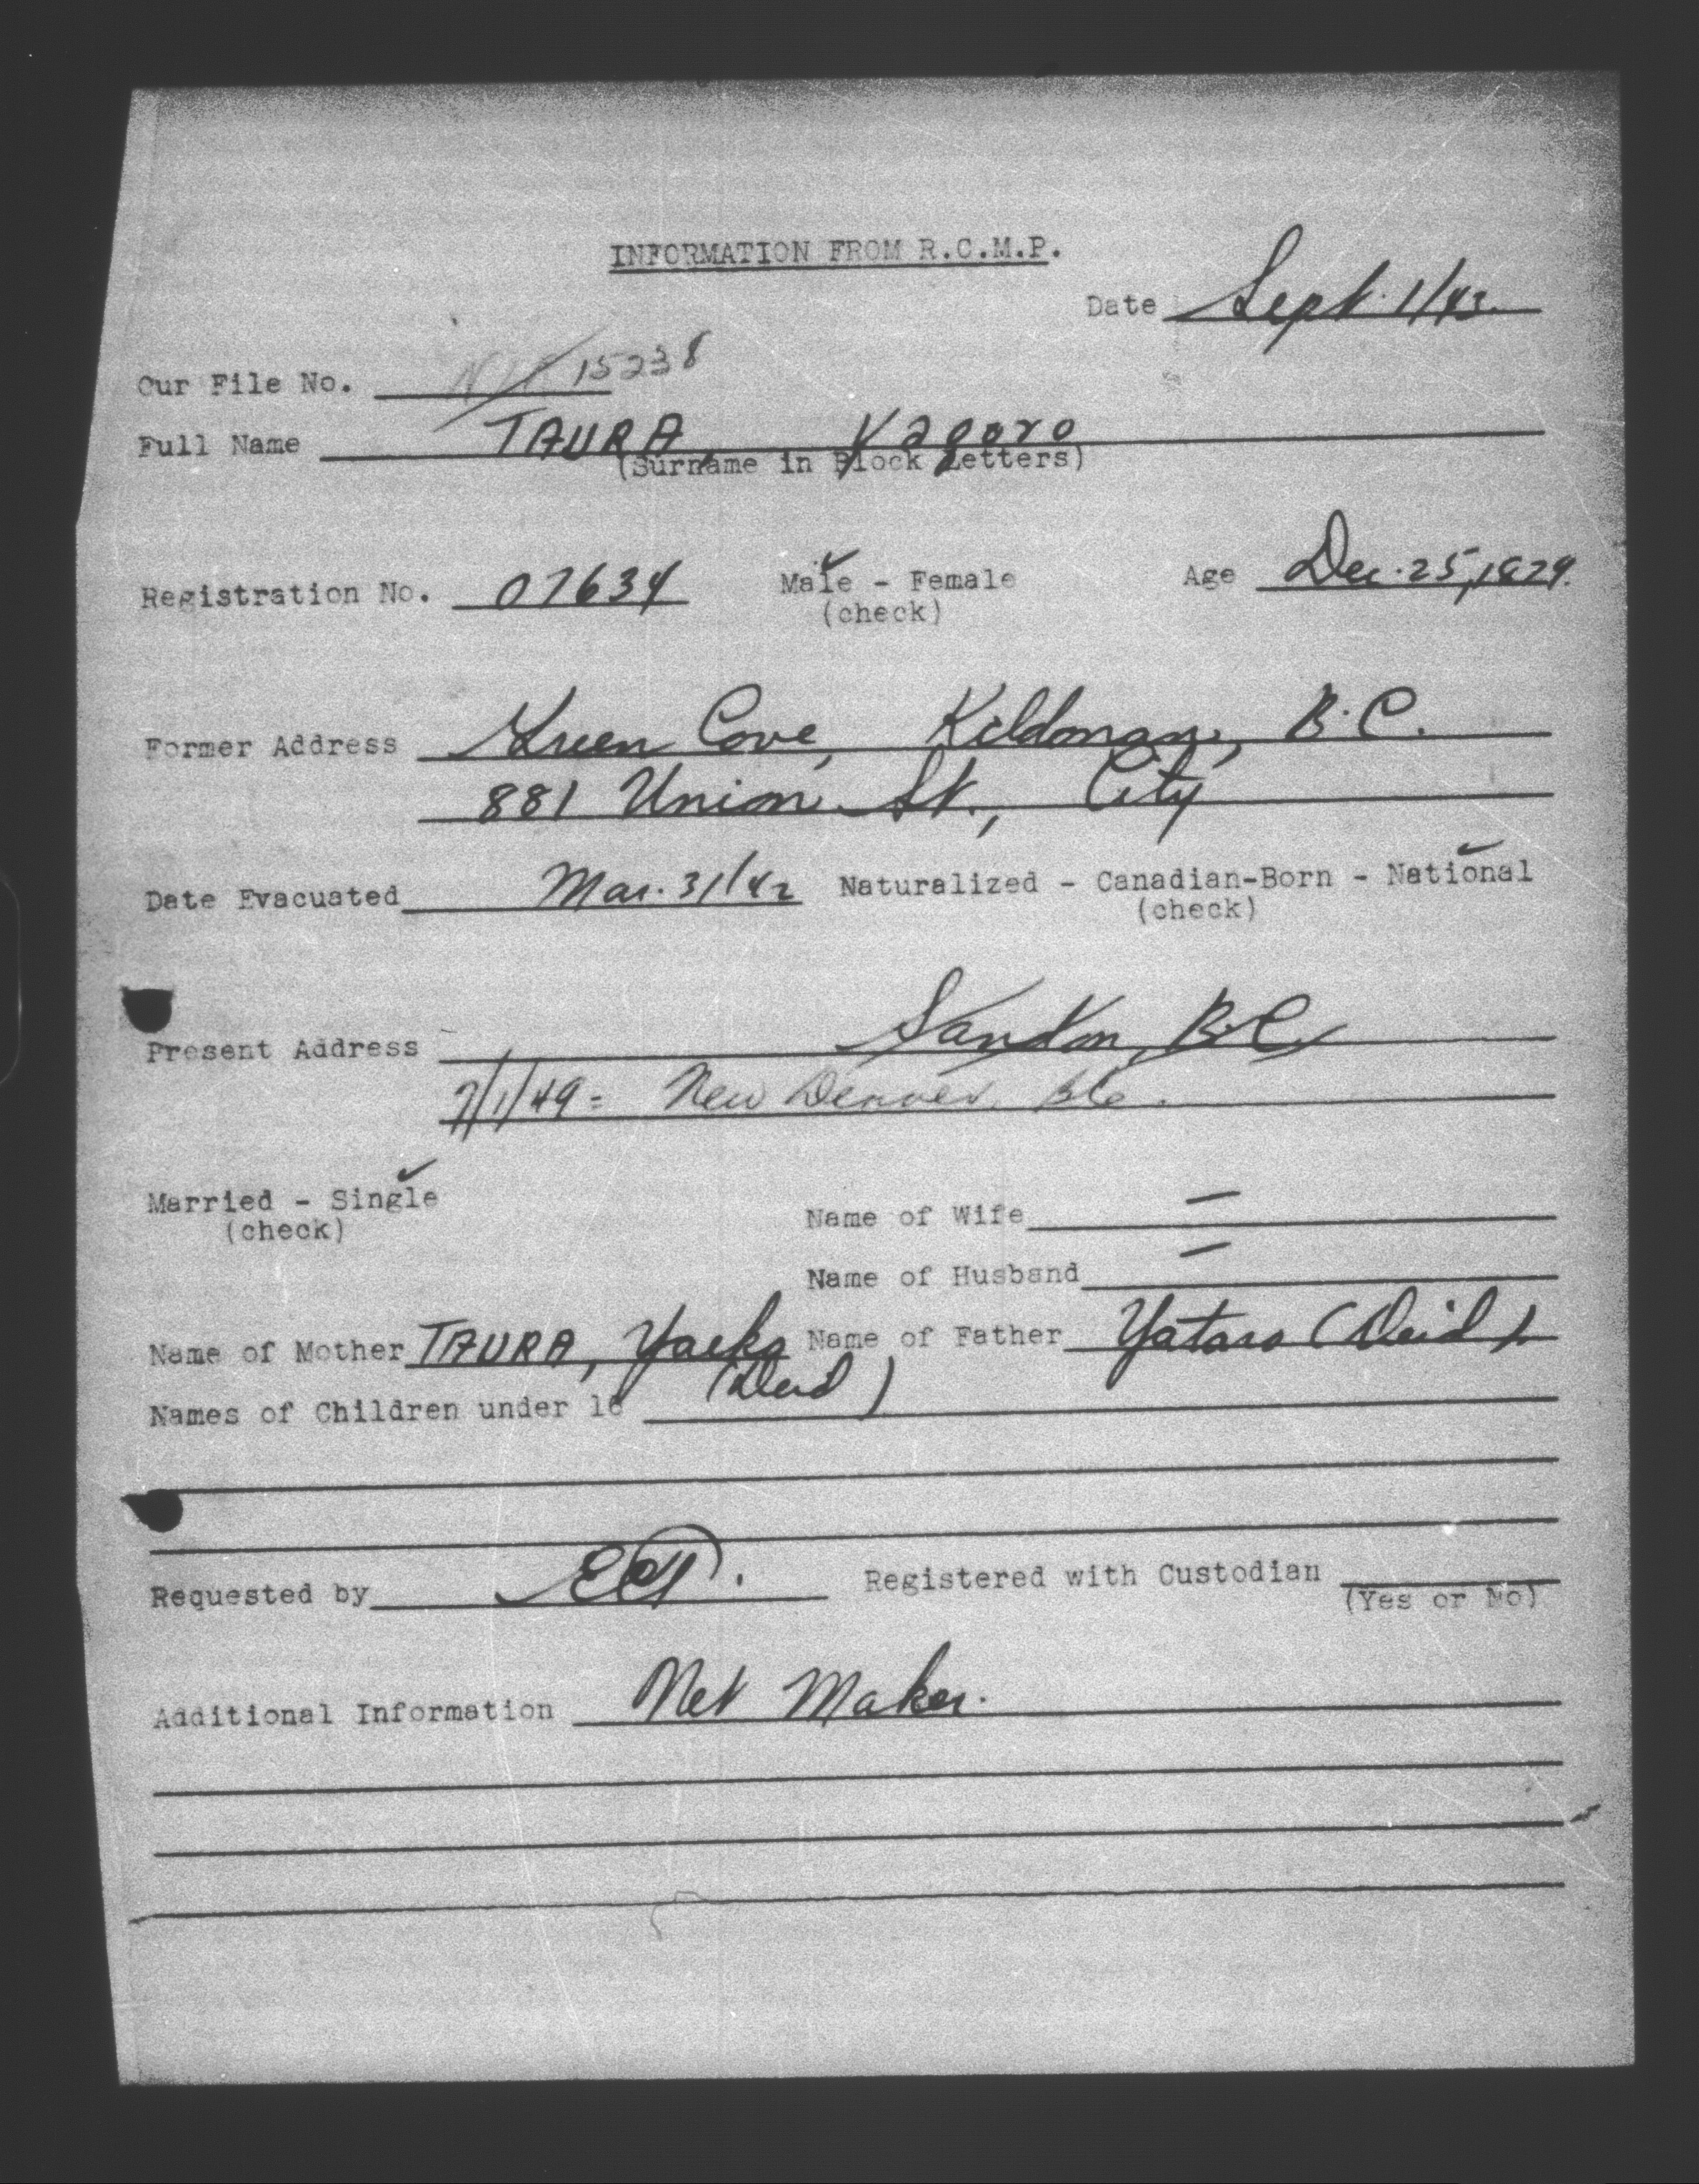 INFORMATION FROM R.C.M.P.
Date Sept. 1/43.
Our File No. 15238
Full Name TAURA, Yagoro
(Surname in Block Letters)
Registration No. 07634 Male ✓ - Female Age Dec. 25, 1879.
(check)
Former Address Green Cove, Kildonan, B.C.
881 Union St., City
Date Evacuated Mar. 31/42 Naturalized - Canadian-Born - National ✓
(check)
Present Address Sandon, B.C.
7/1/49 = New Denver, BC.
Married - Single ✓
(check)
Name of Wife —
Name of Husband —
Name of Mother TAURA, Yaeko Name of Father Yataro (Deid)
(Deid)
Names of Children under 16
Requested by Registered with Custodian
(Yes or No)
Additional Information Net Maker.